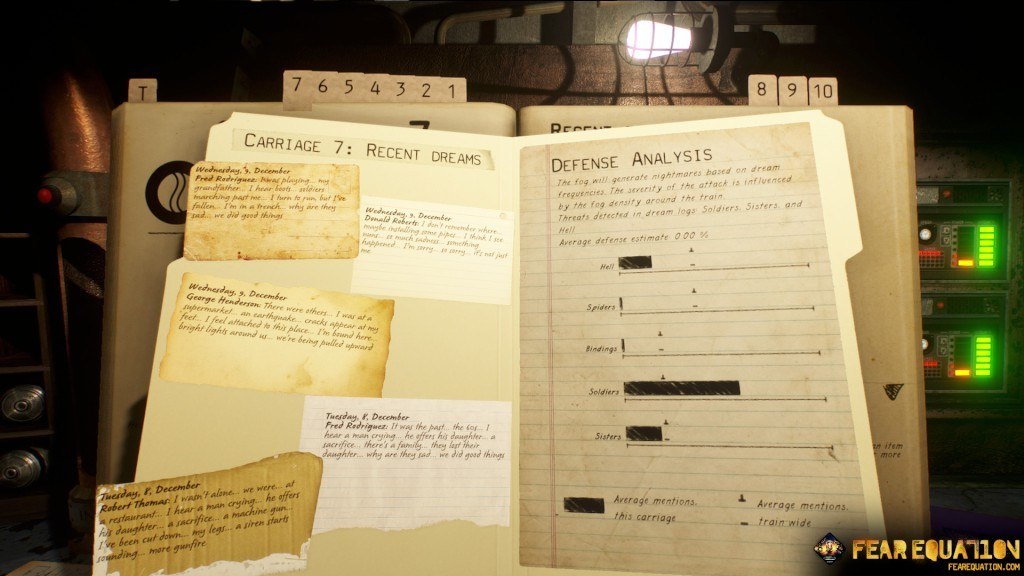 T
7 6 5 4 3 2 1
8 9 10
CARRIAGE 7: RECENT DREAMS
Wednesday, 9, December
Fred Rodriguez: I was playing... my
grandfather... I hear boots... soldiers
marching past me... I turn to run, but I've
fallen... I'm in a trench... why are they
sad... we did good things
Wednesday, 9, December
Donald Roberts: I don't remember where...
maybe installing some pipes... I think I see
nuns... so much sadness... something
happened... I'm sorry... so sorry... it's not just
me
Wednesday, 9, December
George Henderson: There were others... I was at a
supermarket... an earthquake... cracks appear at my
feet... I feel attached to this place... I'm bound here...
bright lights around us... we're being pulled upward
Tuesday, 8, December
Fred Rodriguez: It was the past... the 60s... I
hear a man crying... he offers his daughter... a
sacrifice... there's a family... they lost their
daughter... why are they sad... we did good things
Tuesday, 8, December
Robert Thomas: I wasn't alone... we were... at
a restaurant... I hear a man crying... he offers
his daughter... a sacrifice... a machine gun...
I've been cut down... my legs... a siren starts
sounding... more gunfire
DEFENSE ANALYSIS
The fog will generate nightmares based on dream
frequencies. The severity of the attack is influenced
by the fog density around the train.
Threats detected in dream logs: Soldiers, Sisters, and
Hell
Average defense estimate 0.00 %
Hell
Spiders
Bindings
Soldiers
Sisters
Average mentions,
this carriage
Average mentions,
train wide
item
more
FEAR EQUATION
FEAREQUATION.COM